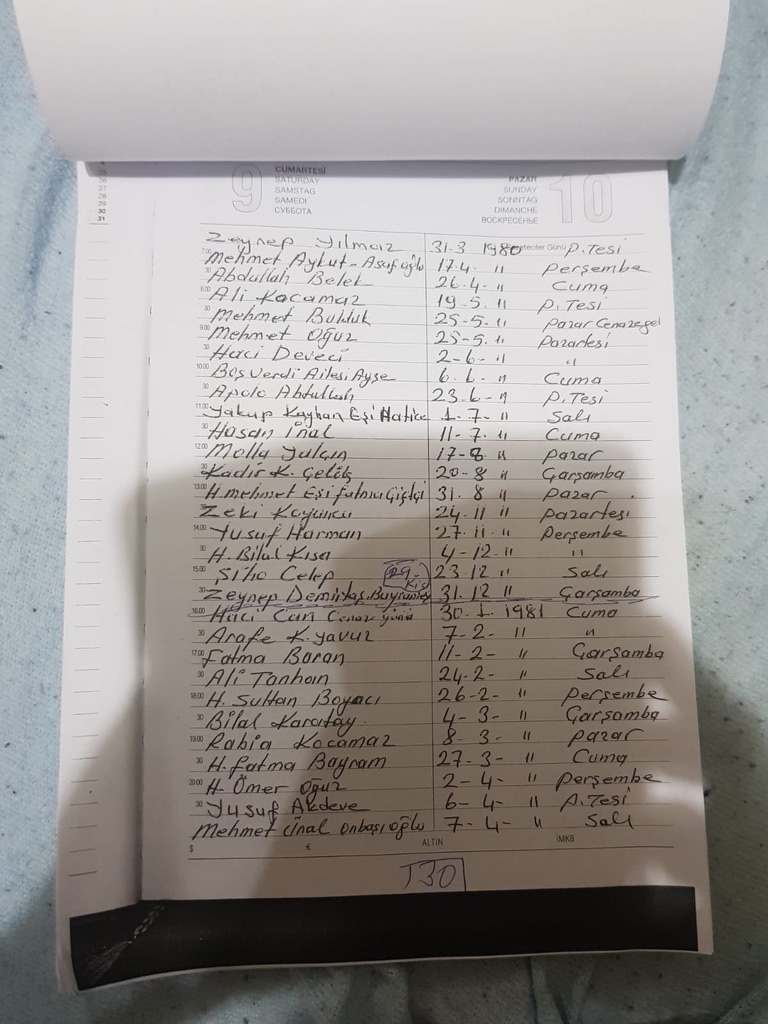 25
26
27
28
29
30
31
9
CUMARTESİ
SATURDAY
SAMSTAG
SAMEDI
СУББОТА
PAZAR
SUNDAY
SONNTAG
DIMANCHE
ВОСКРЕСЕНЬЕ
10
Zeynep Yılmaz 31-3 1980 P.Tesi
Mehmet Aykut-Asafoğlu 17.4. " Perşembe
Abdullah Belek 26.4. " Cuma
Ali Kocamaz 19.5. " P.Tesi
Mehmet Bulduk 25-5. " Pazar Cenazegel
Mehmet Oğuz 25-5. " Pazartesi
Haci Deveci 2-6- " "
Boşverdi Ailesi Ayşe 6.6. " Cuma
Apolo Abdullah 23.6- " P.Tesi
Yakup Kayhan Eşi Hatice 1-7- " Salı
Hasan İnal 11-7. " Cuma
Molla Yalçın 17-8. " Pazar
Kadir K. Çelik 20-8 " Çarşamba
H.mehmet Eşi fatma Çiçkçi 31.8 " Pazar
Zeki Koyuncu 24-11 " Pazartesi
Yusuf Harman 27.11. " Perşembe
H. Bilal Kısa 4-12." "
Şiho Celep 29-Kiş 23.12 " Salı
Zeynep Demirtaş 31.12 " Çarşamba
Haci Cari Cenaze günü 30.1. 1981 Cuma
Arafe K.yavuz 7-2- " "
Fatma Boran 11-2- " Çarşamba
Ali Tanhan 24-2- " Salı
H. Sultan Boyacı 26-2- " Perşembe
Bilal Karatay 4-3- " Çarşamba
Rabia Kocamaz 8-3- " Pazar
H.fatma Bayram 27-3- " Cuma
H. Ömer Oğuz 2-4- " Perşembe
Yusuf Akdeve 6-4- " A.Tesi
Mehmet Cinal Onbaşıoğlu 7-4- " Salı
$ € ALTIN İMKB
T30